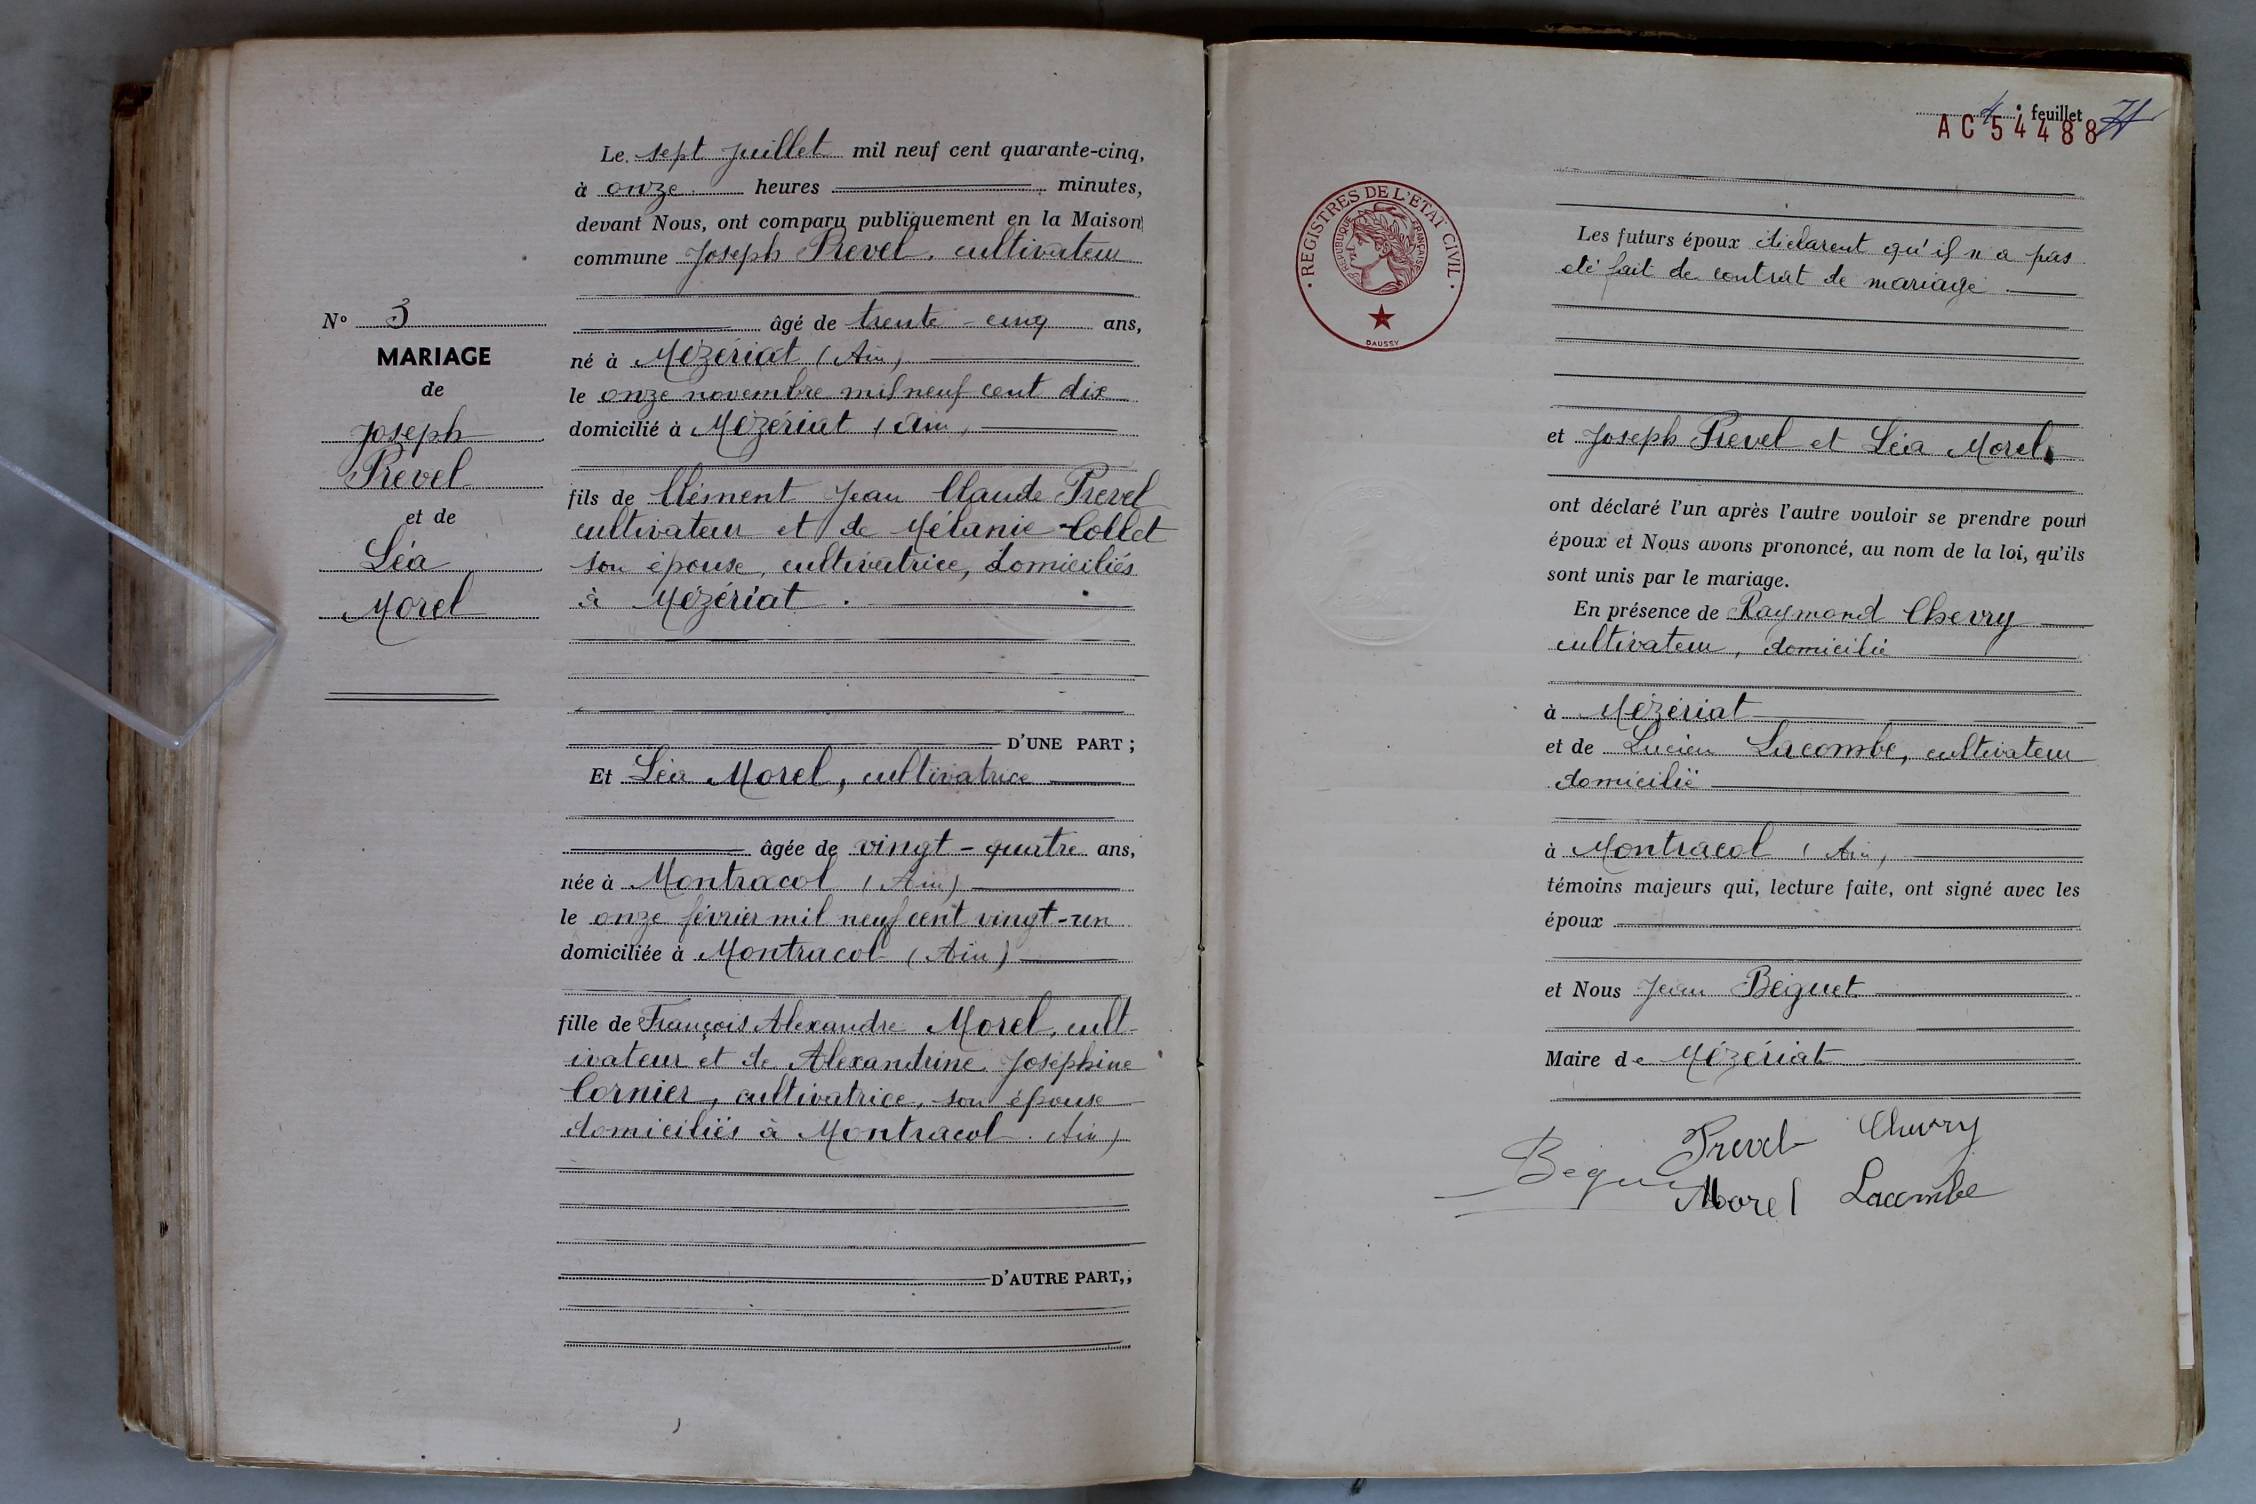 Le sept juillet mil neuf cent quarante-cinq,
à onze heures minutes,
devant Nous, ont comparu publiquement en la Maison
commune Joseph Prevel, cultivateur
âgé de trente-cinq ans,
né à Mézériat (Ain)
le onze novembre mil neuf cent dix
domicilié à Mézériat (Ain)
fils de Clément Jean Claude Prevel
cultivateur et de Mélanie Collet
son épouse, cultivatrice, domiciliés
à Mézériat.
D'UNE PART ;
Et Léa Morel, cultivatrice
âgée de vingt-quatre ans,
née à Montracol (Ain)
le onze février mil neuf cent vingt-un
domiciliée à Montracol (Ain)
fille de François Alexandre Morel, cult-
ivateur et de Alexandrine Joséphine
Cornier, cultivatrice, son épouse
domiciliés à Montracol (Ain)
D'AUTRE PART,;
N° 3
MARIAGE
de
Joseph
Prevel
et de
Léa
Morel
4 feuillet
AC54488
REGISTRES DE L'ETAT CIVIL
REPUBLIQUE FRANÇAISE
DAUSSY
Les futurs époux déclarent qu'il n'a pas
été fait de contrat de mariage
et Joseph Prevel et Léa Morel
ont déclaré l'un après l'autre vouloir se prendre pour
époux et Nous avons prononcé, au nom de la loi, qu'ils
sont unis par le mariage.
En présence de Raymond Chevry
cultivateur, domicilié
à Mézériat
et de Lucien Lacombe, cultivateur
domicilié
à Montracol (Ain)
témoins majeurs qui, lecture faite, ont signé avec les
époux
et Nous Jean Béguet
Maire de Mézériat
Prevel Chevry
Beguet Morel Lacombe